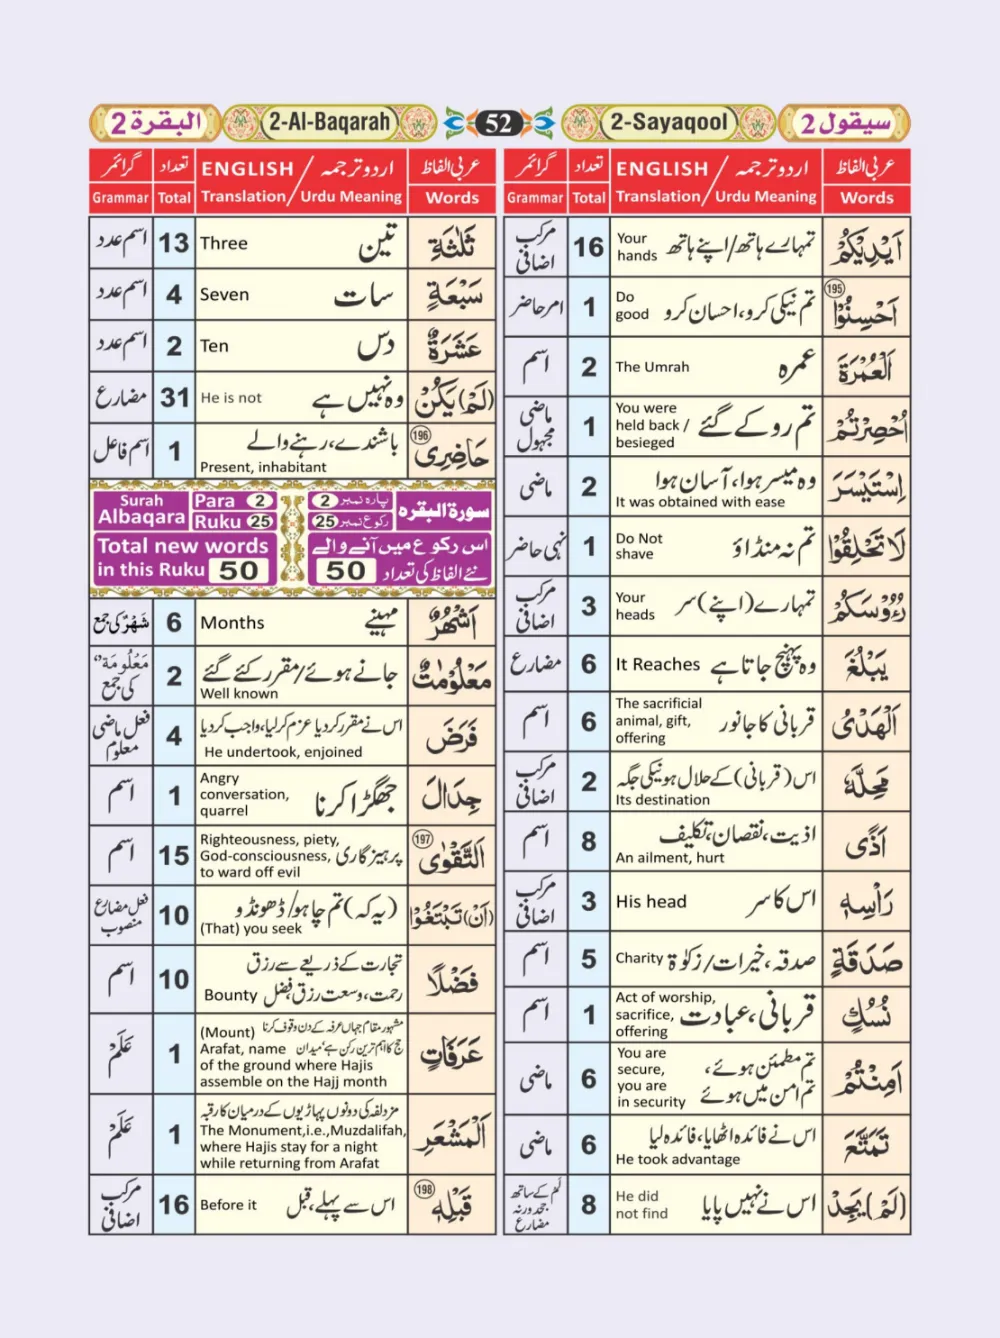 البقرة 2
2-Al-Baqarah
52
2-Sayaqool
سيقول 2
عربی الفاظ
اردو ترجمہ / ENGLISH
تعداد
گرائمر
Words
Translation / Urdu Meaning
Total
Grammar
اَيْدِيْكُمْ
تمہارے ہاتھ/اپنے ہاتھ
Your hands
16
مرکب اضافی
195
اَحْسِنُوْا
تم نیکی کرو، احسان کرو
Do good
1
امر حاضر
اَلْعُمْرَةَ
عمرہ
The Umrah
2
اسم
اُحْصِرْتُمْ
تم روکے گئے
You were held back / besieged
1
ماضی مجہول
اِسْتَيْسَرَ
وہ میسر ہوا، آسان ہوا
It was obtained with ease
2
ماضی
لَا تَحْلِقُوْا
تم نہ منڈاؤ
Do Not shave
1
نہی حاضر
رُءُوْسَكُمْ
تمہارے (اپنے) سر
Your heads
3
مرکب اضافی
يَبْلُغَ
وہ پہنچ جاتا ہے
It Reaches
6
مضارع
اَلْهَدْىُ
قربانی کا جانور
The sacrificial animal, gift, offering
6
اسم
مَحِلَّهٗ
اس (قربانی) کے حلال ہونیکی جگہ
Its destination
2
مرکب اضافی
اَذًى
اذیت، نقصان، تکلیف
An ailment, hurt
8
اسم
رَأْسِهٖ
اس کا سر
His head
3
مرکب اضافی
صَدَقَةٍ
صدقہ، خیرات/زکوٰۃ
Charity
5
اسم
نُسُكٍ
قربانی، عبادت
Act of worship, sacrifice, offering
1
اسم
اَمِنْتُمْ
تم مطمئن ہوئے،
تم امن میں ہوئے
You are secure, you are in security
6
ماضی
تَمَتَّعَ
اس نے فائدہ اٹھایا، فائدہ لیا
He took advantage
6
ماضی
(لَمْ) يَجِدْ
اس نے نہیں پایا
He did not find
8
لم کے ساتھ جحد ورنہ مضارع
عربی الفاظ
اردو ترجمہ / ENGLISH
تعداد
گرائمر
Words
Translation / Urdu Meaning
Total
Grammar
ثَلٰثَةِ
تین
Three
13
اسم عدد
سَبْعَةٍ
سات
Seven
4
اسم عدد
عَشَرَةٌ
دس
Ten
2
اسم عدد
(لَمْ) يَكُنْ
وہ نہیں ہے
He is not
31
مضارع
196
حَاضِرِى
باشندے، رہنے والے
Present, inhabitant
1
اسم فاعل
Surah Albaqara
Para 2
Ruku 25
پارہ نمبر 2
رکوع نمبر 25
سورة البقره
Total new words in this Ruku 50
اس رکوع میں آنے والے
نئے الفاظ کی تعداد 50
اَشْهُرٌ
مہینے
Months
6
شَهْرٌ کی جمع
مَعْلُوْمٰتٌ
جانے ہوئے/مقرر کئے گئے
Well known
2
مَعْلُومَةٌ کی جمع
فَرَضَ
اس نے مقرر کردیا عزم کرلیا، واجب کردیا
He undertook, enjoined
4
فعل ماضی معلوم
جِدَالَ
جھگڑا کرنا
Angry conversation, quarrel
1
اسم
197
اَلتَّقْوٰى
پرہیزگاری
Righteousness, piety, God-consciousness, to ward off evil
15
اسم
(اَنْ) تَبْتَغُوْا
(یہ کہ) تم چاہو/ڈھونڈو
(That) you seek
10
فعل مضارع منصوب
فَضْلًا
تجارت کے ذریعے سے رزق
رحمت، وسعت رزق فضل
Bounty
10
اسم
عَرَفَاتٍ
مشہور مقام جہاں عرفہ کے دن وقوف کرنا
حج کا اہم ترین رکن ہے، میدان
(Mount) Arafat, name of the ground where Hajis assemble on the Hajj month
1
عَلَمْ
اَلْمَشْعَرِ
مزدلفہ کی دونوں پہاڑیوں کے درمیان کا رقبہ
The Monument,i.e.,Muzdalifah, where Hajis stay for a night while returning from Arafat
1
عَلَمْ
198
قَبْلِهٖ
اس سے پہلے، قبل
Before it
16
مرکب اضافی